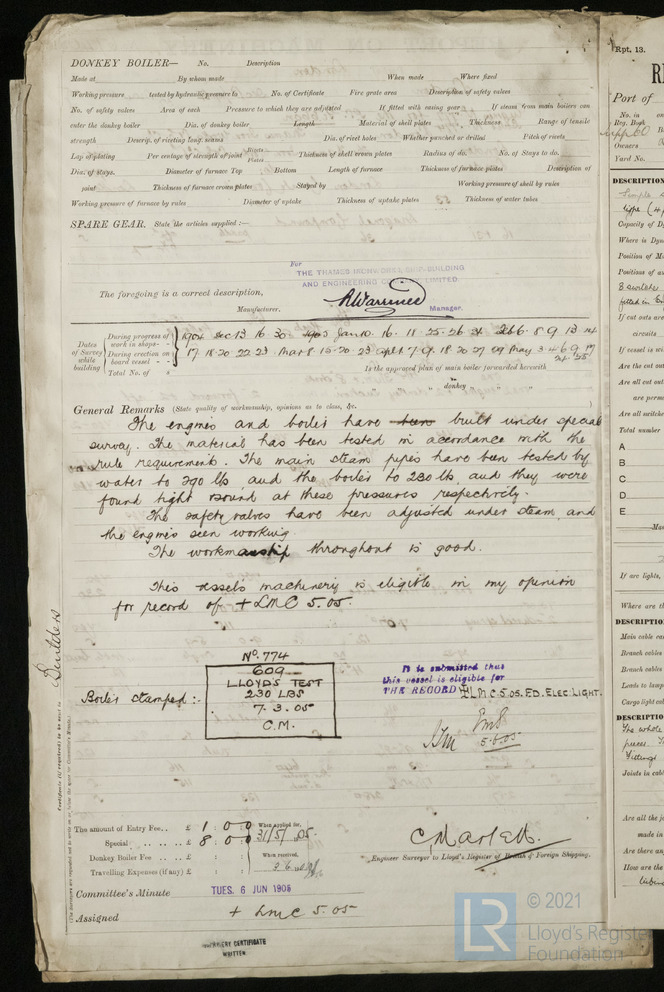 DONKEY BOILER— No. Description
Made at By whom made When made Where fixed
Working pressure tested by hydraulic pressure to No. of Certificate Fire grate area Description of safety valves
No. of safety valves Area of each Pressure to which they are adjusted If fitted with easing gear If steam from main boilers can
enter the donkey boiler Dia. of donkey boiler Length Material of shell plates Thickness Range of tensile
strength Descrip. of riveting long. seams Dia. of rivet holes Whether punched or drilled Pitch of rivets
Lap of plating Per centage of strength of joint Rivets Plates Thickness of shell crown plates Radius of do. No. of Stays to do.
Dia. of stays. Diameter of furnace Top Bottom Length of furnace Thickness of furnace plates Description of
joint Thickness of furnace crown plates Stayed by Working pressure of shell by rules
Working pressure of furnace by rules Diameter of uptake Thickness of uptake plates Thickness of water tubes
SPARE GEAR. State the articles supplied:—
For
THE THAMES IRONWORKS, SHIP-BUILDING
AND ENGINEERING CO. LIMITED.
The foregoing is a correct description,
Manufacturer.
Manager.
Dates of Survey while building
During progress of work in shops— 1904 Dec 13 16 30 1905 Jan 10. 16. 11. 25. 26 31 Feb 6. 8 9 13 14
During erection on board vessel 17. 18. 20. 22 23 Mar 8. 15. 20 23 April 7. 9. 18. 20 27 29 May 3 4 6 9 17
Total No. of
Is the approved plan of main boiler forwarded herewith
" " " donkey " "
General Remarks (State quality of workmanship, opinions as to class, &c.
The engines and boiler have been built under special
survey. The material has been tested in accordance with the
rule requirement. The main steam pipes have been tested by
water to 290 lb and the boiler to 230 lb, and they were
found tight & sound at these pressures respectively.
The safety valves have been adjusted under steam, and
the engines seen working.
The workmanship throughout is good.
This vessel's machinery is eligible in my opinion
for record of + LMC 5.05.
Boiler stamped:-
No. 774
609
LLOYD'S TEST
230 LBS
7. 3. 05
C.M.
It is submitted that
this vessel is eligible for
THE RECORD + LMC 5.05. ED. ELEC. LIGHT.
5.6.05
Builders
The amount of Entry Fee.. £ 1 : 0 : 0 When applied for,
Special £ 8 : 0 : 0 31/5/05.
Donkey Boiler Fee £ : : When received,
Travelling Expenses (if any) £ : :
Engineer Surveyor to Lloyd's Register of British & Foreign Shipping.
Committee's Minute TUES. 6 JUN 1905
Assigned + LMC 5.05
MACHINERY CERTIFICATE
WRITTEN.
Rpt. 13.
Port of
No. in
Reg. Book
Owners
Yard No.
DESCRIPTION
Capacity of Dy
Where is Dyna
Position of Ma
Positions of au
If cut outs are
circuits
If vessel is wi
Are the cut ou
Are all cut ou
are perma
Are all switche
Total number
A
B
C
D
E
If arc lights,
Where are th
DESCRIPTIO
Main cable ca
Branch cables
Branch cables
Leads to lamp
Cargo light cab
DESCRIPTIO
The whole
Fittings
Joints in cabl
Are all the jo
made in
Are there any
How are the
© 2021
LR
Lloyd's Register
Foundation